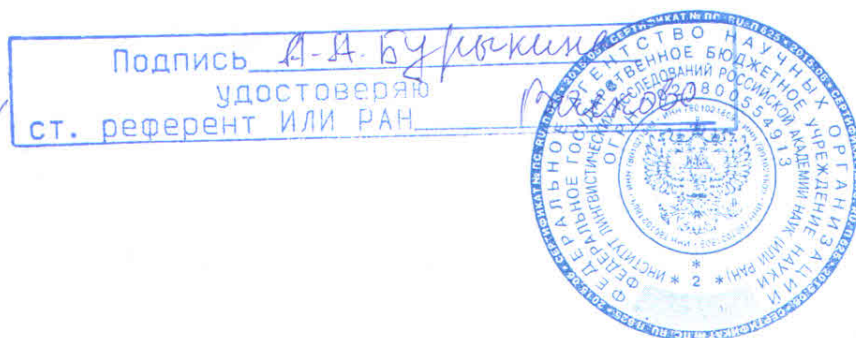 Подпись А.А. Бурыкина
удостоверяю
ст. референт ИЛИ РАН
ФЕДЕРАЛЬНОЕ АГЕНТСТВО НАУЧНЫХ ОРГАНИЗАЦИЙ
ФЕДЕРАЛЬНОЕ ГОСУДАРСТВЕННОЕ БЮДЖЕТНОЕ УЧРЕЖДЕНИЕ НАУКИ
ИНСТИТУТ ЛИНГВИСТИЧЕСКИХ ИССЛЕДОВАНИЙ РОССИЙСКОЙ АКАДЕМИИ НАУК (ИЛИ РАН)
* 2 *